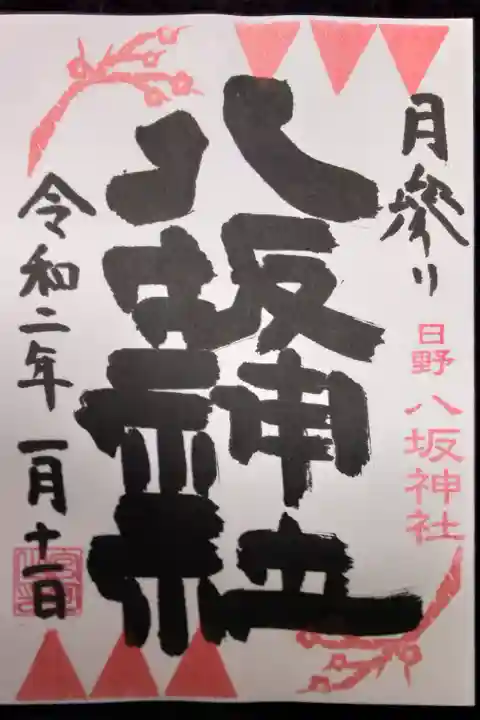 月參り
日野
八坂神社
八坂神社
令和二年 一月十一日